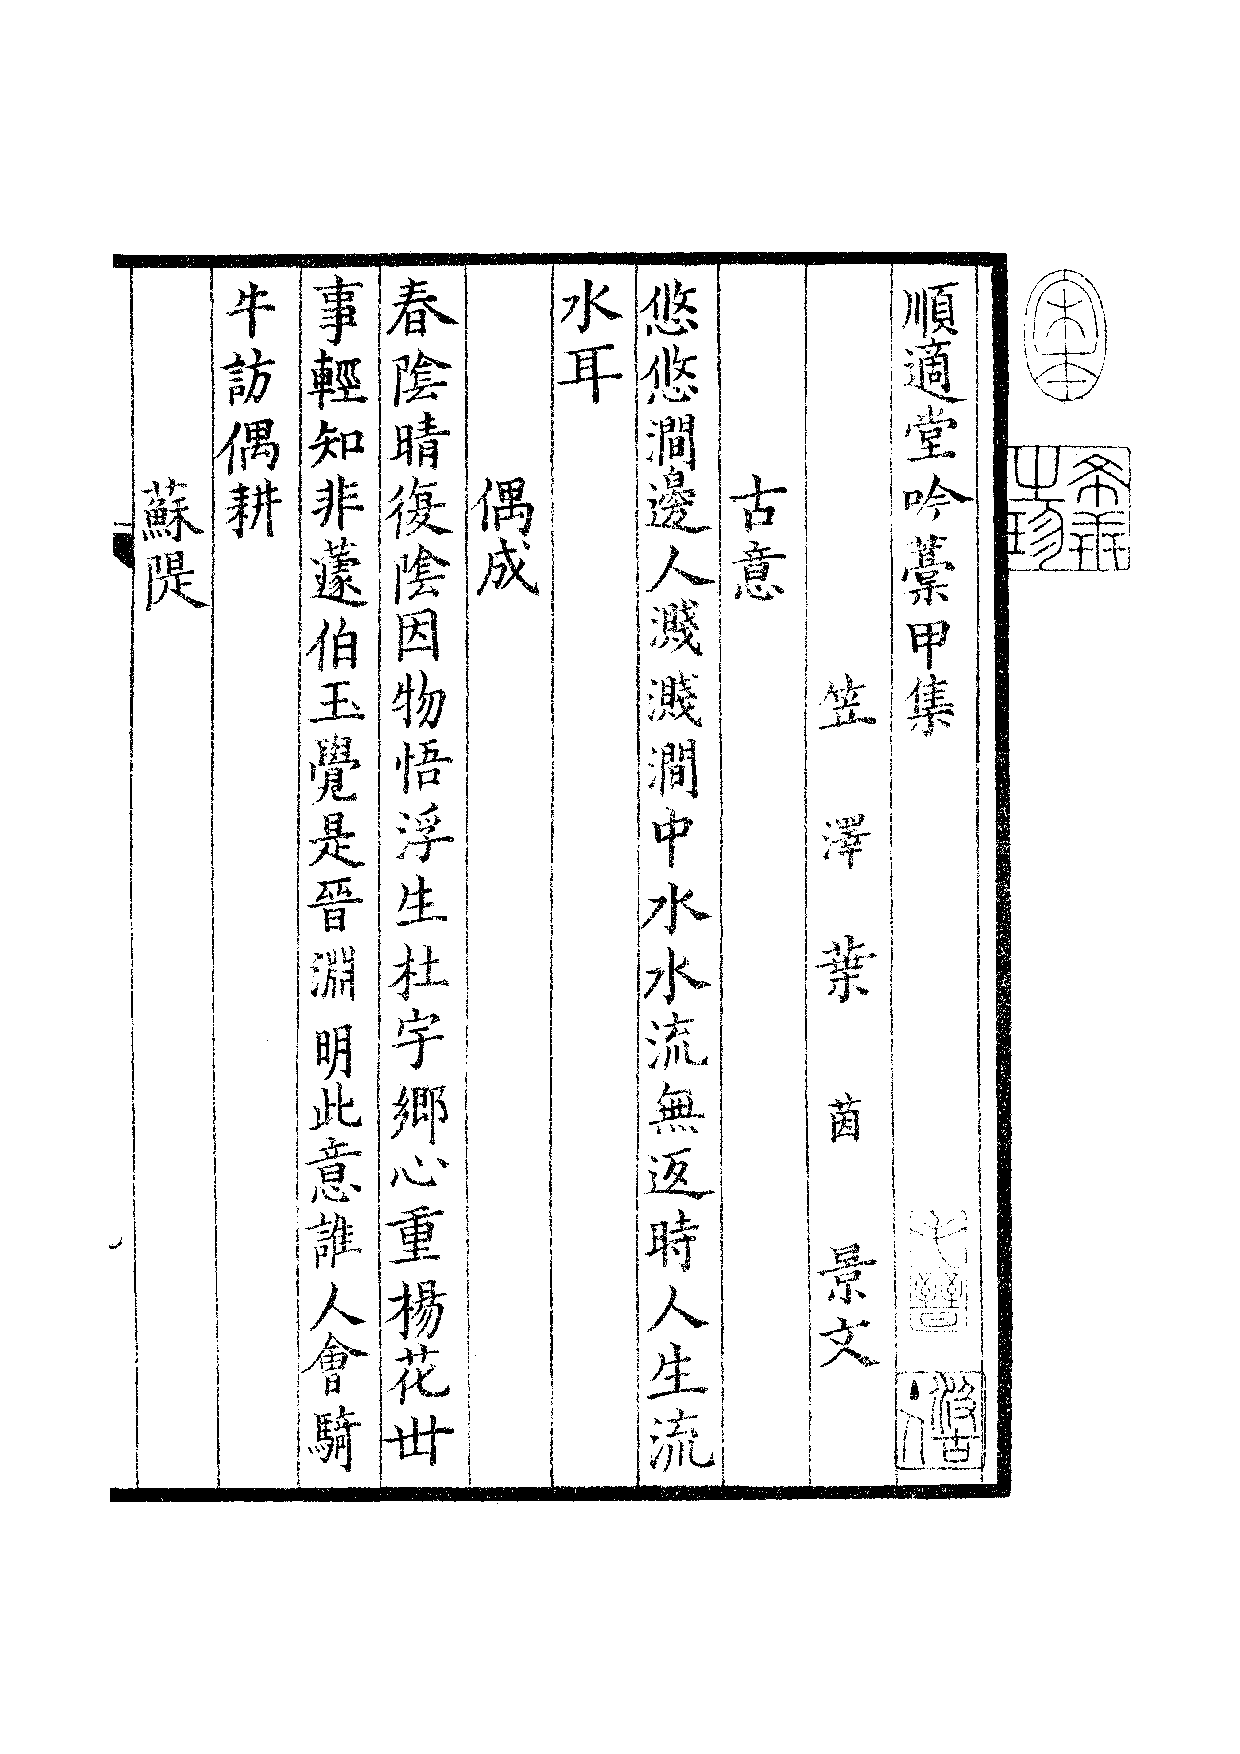 順適堂吟藁甲集
笠澤葉茵景文
古意
悠悠澗邊人濺濺澗中水水流無返時人生流
水耳
偶成
春陰晴復陰因物悟浮生杜宇鄉心重楊花世
事輕知非蘧伯玉覺是晉淵明此意誰人會騎
牛訪偶耕
蘇隄
希世之珍